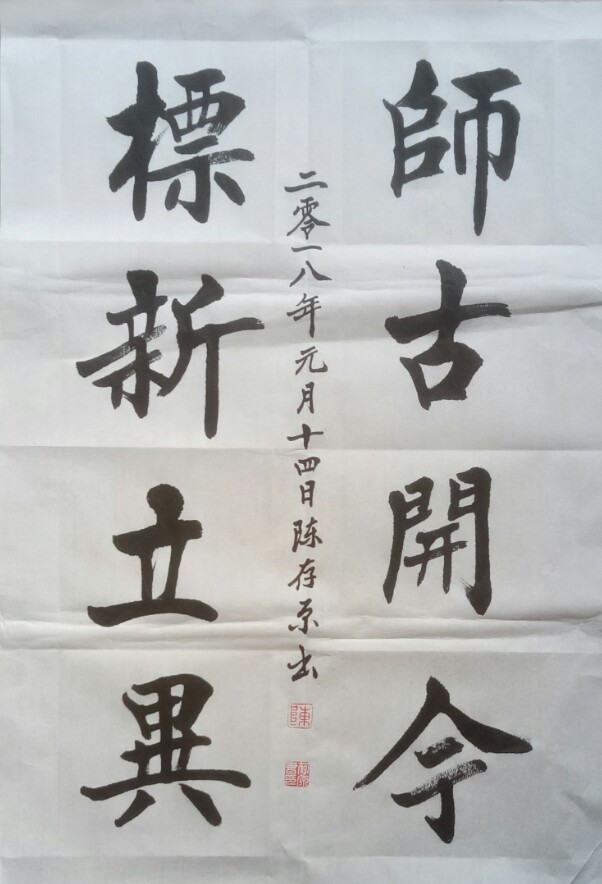 師古開今
二零一八年元月十四日陈存原书
標新立異
陳